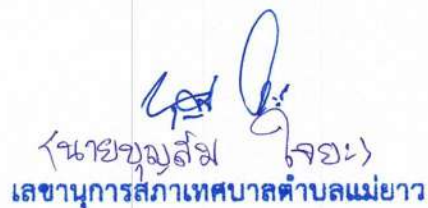 (นายบุญส่ม ใจยะ)
เลขานุการสภาเทศบาลตำบลแม่ยาว